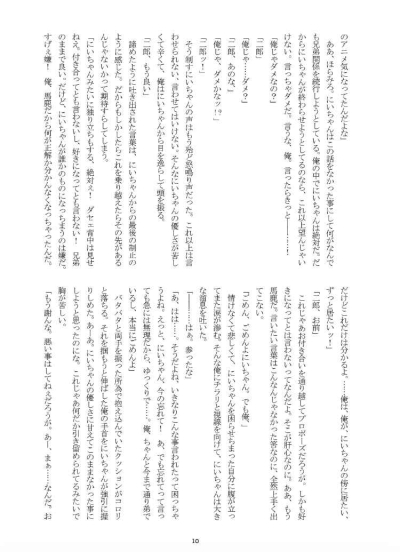 のアニメ気になってたんだよな」
ああ、ほらみろ。にいちゃんはこの話をなかった事にして何がなんで
も兄弟関係を続行しようとしている。俺の中でにいちゃんは絶対だ。だ
からにいちゃんが終わらせようとしてるのなら、これ以上望んじゃい
けない。言っちゃダメだ。言うな、俺。言ったらきっと――――！
「俺じゃダメなの？」
「二郎」
「俺じゃ……ダメ？」
「二郎、あのな」
「俺じゃ、ダメかなッ！？」
「二郎ッ！」
そう制すにいちゃんの声はもう殆ど悲鳴り声だった。これ以上は言
わせられない、言わせてはいけない。そんなにいちゃんの優しさが苦し
くて辛くて、俺はにいちゃんから目を逸らして頭を振る。
「二郎、もう良い」
諦めたように吐き出された言葉は、にいちゃんからの最後の制止の
ように感じた。だからもしかしたらこれを乗り越えたらその先がある
んじゃないかって期待すらしてしまう。
「にいちゃんみたいに独り立ちもする、絶対ぇ！　ダセェ背中は見せ
ねぇ。付き合ってとも言わないし、好きになってとも言わない！　兄弟
のままで良い、だけど、にいちゃんが誰かのものになっちまうのは嫌だ。
すげぇ嫌！　俺、馬鹿だから何が正解か分かんなくなっちゃったんだ。
だけどこれだけは分かるよ。……俺は、俺が、にいちゃんの傍に居たい、
ずっと居たいッ！」
「二郎、お前」
これじゃあお付き合いを通り越してプロポーズだろうが。しかも好
きになってとは言わないってなんだよ。そこが肝心なのに。ああ、もう
馬鹿だ。言いたい言葉はこんなんじゃなかった筈なのに、全然上手く出
てこない。
「ごめん、ごめんよにいちゃん。でも、俺」
情けなくて悲しくて、にいちゃんを困らせちまった自分に腹が立っ
てまた涙が滲む。そんな俺にチラリと視線を向けて、にいちゃんは大き
な溜息を吐いた。
「――――はぁ。参ったな」
「あ、はは……。そうだよね、いきなりこんな事言われたって困っちゃ
うよね。えっと、にいちゃん、今の忘れて！　あ、でも忘れてって言っ
ても急には無理だから、ゆっくりで……。俺、ちゃんと今まで通り弟で
いるし、本当にごめんよ」
バタバタと両手を振った所為で抱え込んでいたクッションがコロリ
と落ちる。それを掴もうと伸ばした俺の手首をにいちゃんが強引に握
りしめた。あーあ。にいちゃんの優しさに甘えてこのままなかった事に
しようと思ったのにな。これじゃあ何だか引き留められてるみたいで
胸が苦しい。
「もう謝んな。悪い事はしてねぇだろうが。あー、まぁ……なんだ。お
10